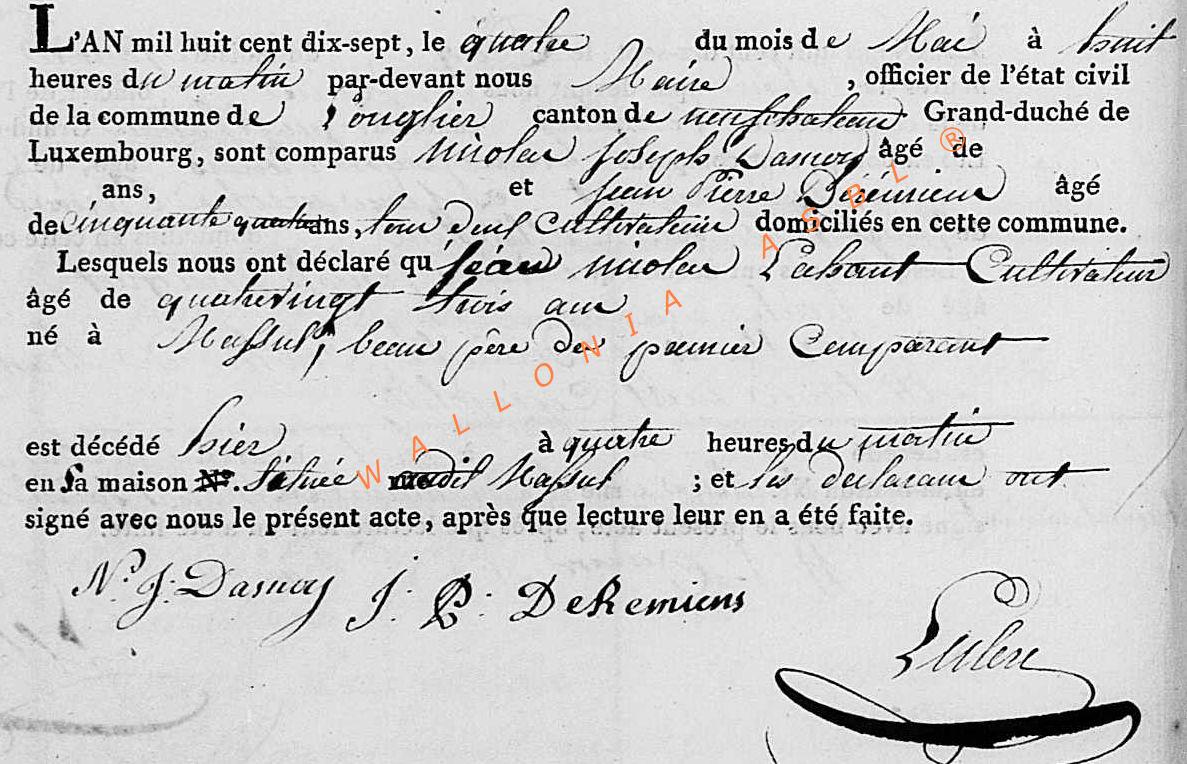 L'AN mil huit cent dix-sept, le quatre du mois de Mai à huit
heures du matin par-devant nous Maire , officier de l'état civil
de la commune de Longlier canton de neufchateau Grand-duché de
Luxembourg, sont comparus Nicolas Joseph Dasnoy âgé de
ans, et Jean Pierre âgé
de cinquante quatre ans, tous deux Cultivateurs domiciliés en cette commune.
Lesquels nous ont déclaré qu'jean nicolas Lahaut Cultivateur
âgé de quatrevingt trois ans
né à Massul, beau père du premier Comparant
est décédé hier à quatre heures du matin
en sa maison N°. Située audit Massul ; et les déclarans ont
signé avec nous le présent acte, après que lecture leur en a été faite.
N. J. Dasnoy J. P. DeRemiens
WALLONIA ASBL ®